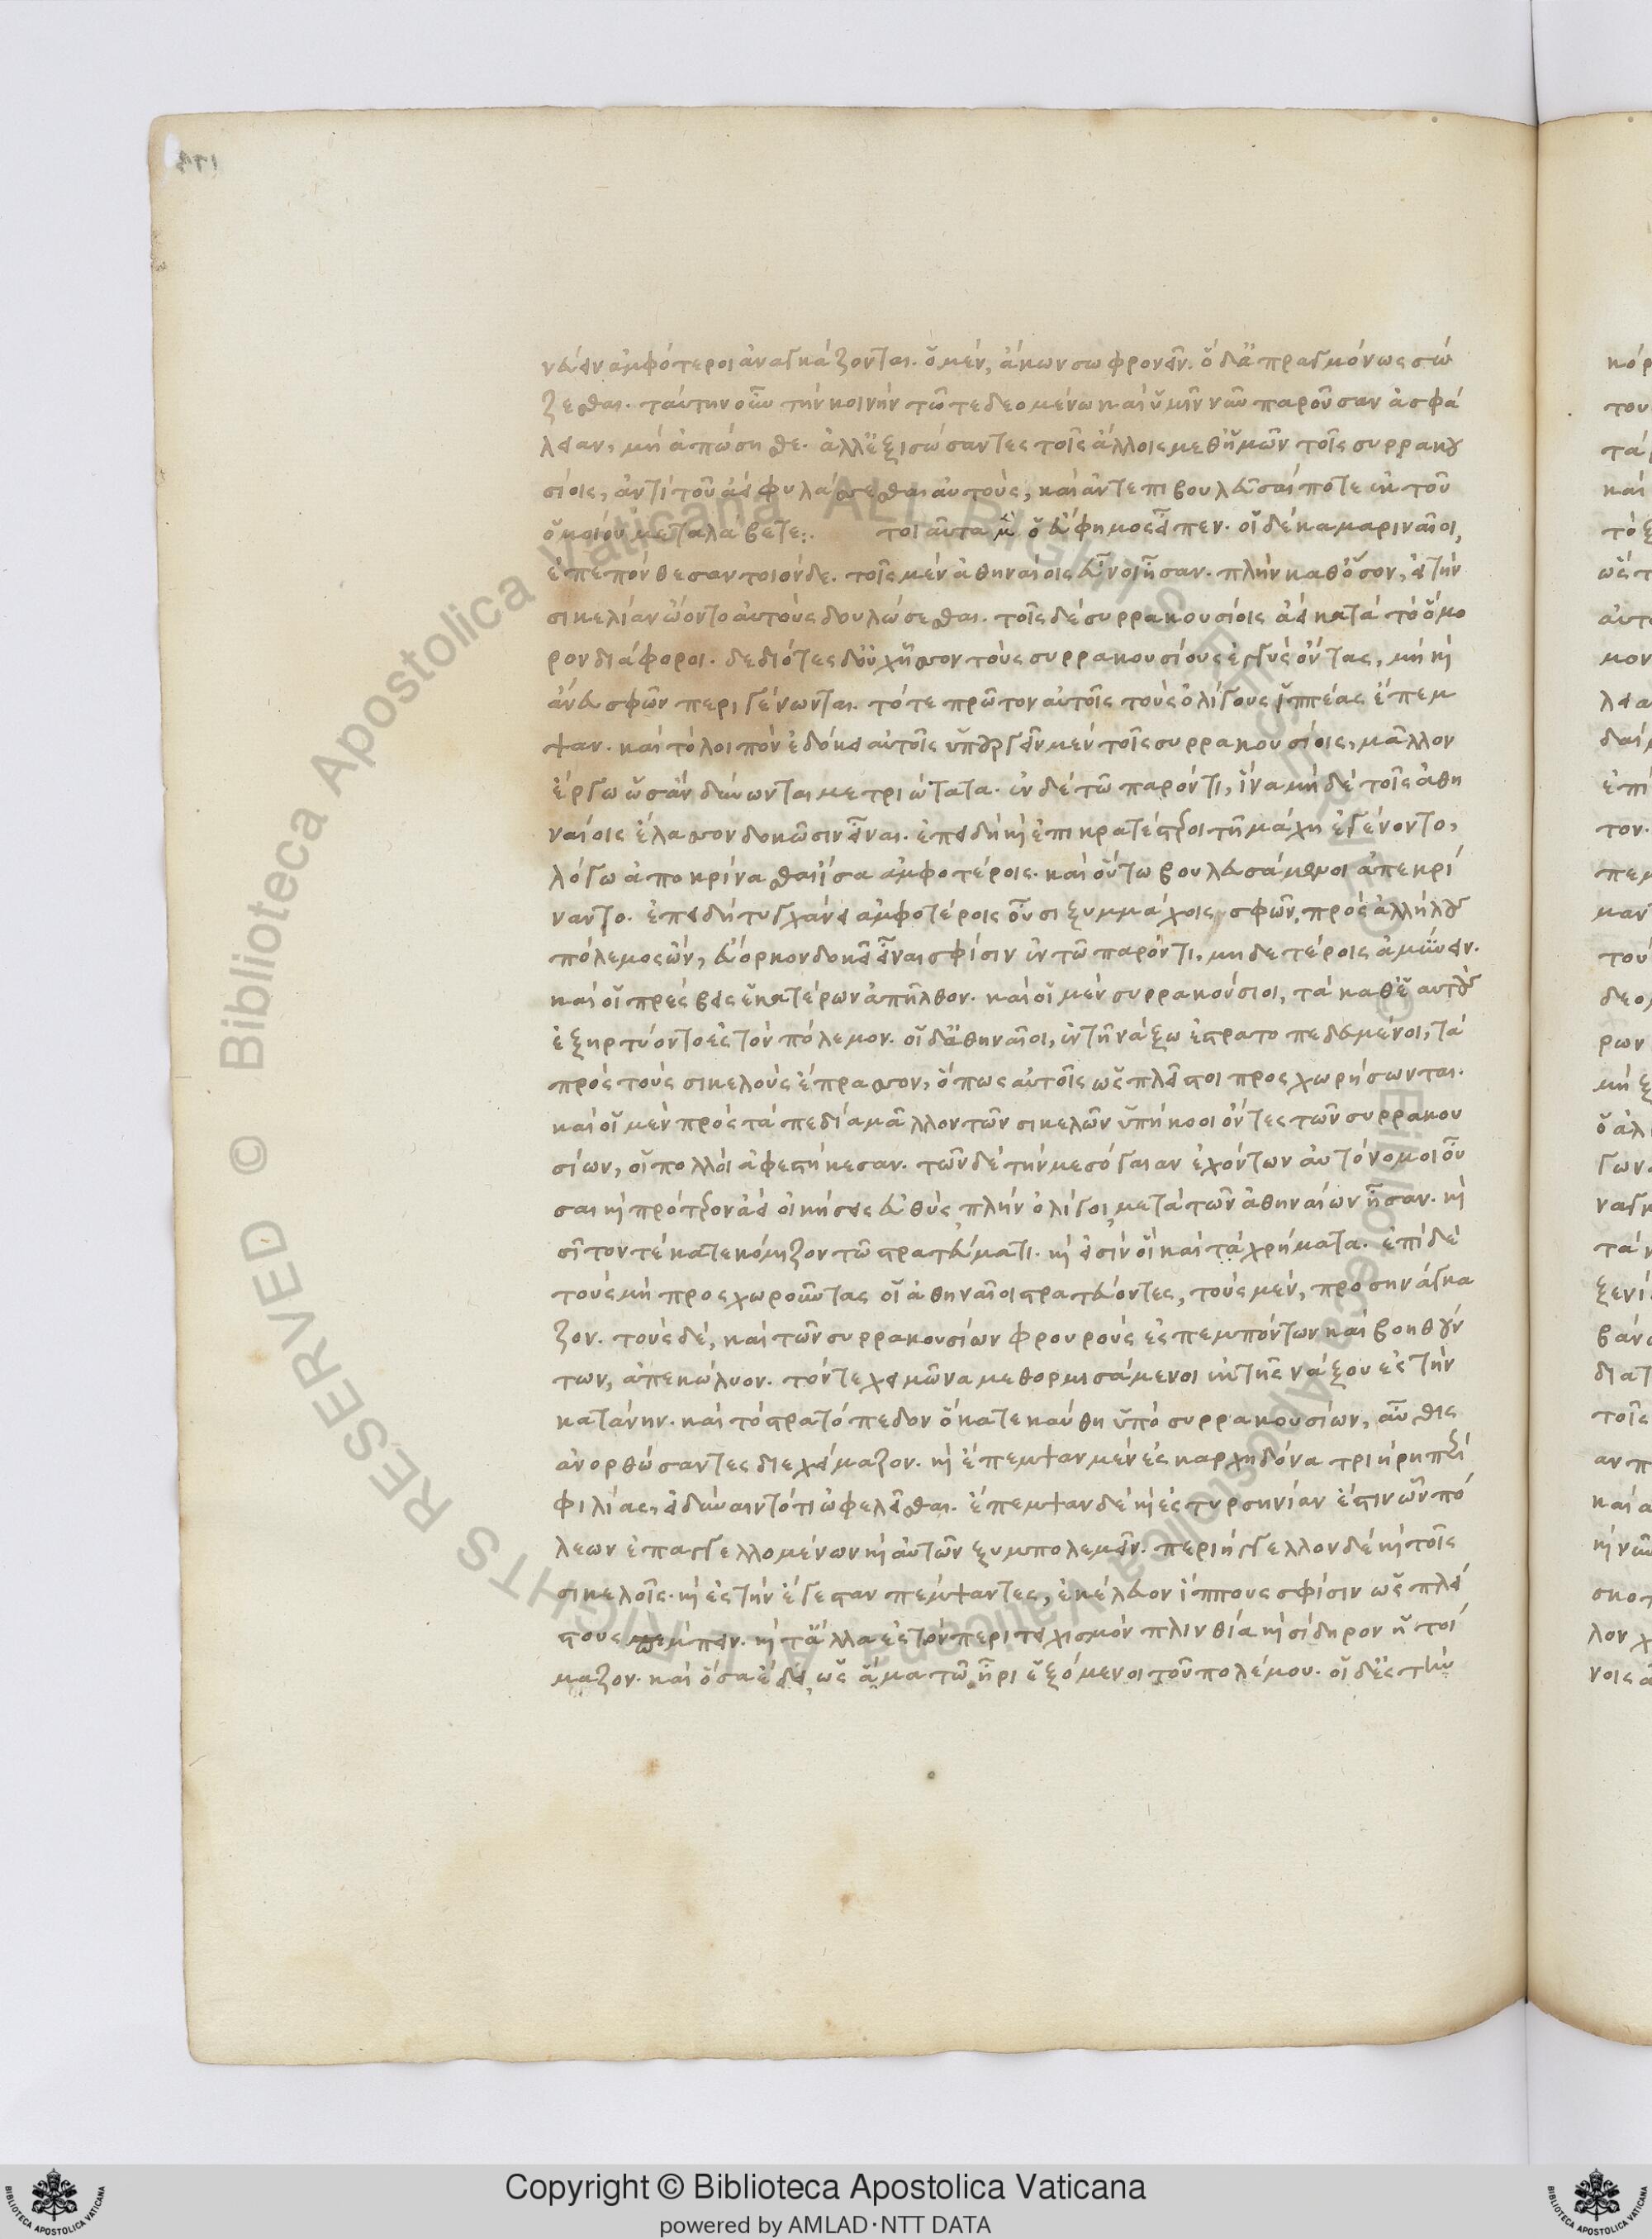 νεύειν ἀμφότεροι ἀναγκάζονται. ὁ μὲν, ἄκων σωφρονεῖν. ὁ δ' ἀπραγμόνως σώ
ζεσθαι. ταύτην οὖν τὴν κοινὴν τῶ τε δεομένω καὶ ὑμῖν νῦν παροῦσαν ἀσφά
λειαν, μὴ ἀπώσησθε. ἀλλ' ἐξισώσαντες τοῖς ἄλλοις μεθ' ἡμῶν τοῖς συρρακου
σίοις, ἀντὶ τοῦ ἀεὶ φυλάσσεσθαι αὐτοὺς, καὶ ἀντεπιβουλεῦσαί ποτε ἐκ τοῦ
ὁμοίου μεταλάβετε:. τοιαῦτα μὲν ὁ εὔφημος εἶπεν. οἱ δὲ καμαριναῖοι,
ἐπεπόνθεσαν τοιόνδε. τοῖς μὲν ἀθηναίοις εὖνοι ἦσαν. πλὴν καθ' ὅσον, εἰ τὴν
σικελίαν ὤοντο αὐτοὺς δουλώσεσθαι. τοῖς δὲ συρρακουσίοις ἀεὶ κατὰ τὸ ὅμο
ρον διάφοροι. δεδιότες δ' οὐχ ἧσσον τοὺς συρρακουσίους ἐγγὺς ὄντας, μὴ καὶ
ἄνευ σφῶν περιγένωνται. τό τε πρῶτον αὐτοῖς τοὺς ὀλίγους ἱππέας ἔπεμ
ψαν. καὶ τὸ λοιπὸν ἐδόκει αὐτοῖς ὑπουργεῖν μὲν τοῖς συρρακουσίοις, μᾶλλον
ἔργω ὡς ἂν δύνωνται μετριώτατα. ἐν δὲ τῶ παρόντι, ἵνα μηδὲ τοῖς ἀθη
ναίοις ἔλασσον δοκῶσιν εἶναι. ἐπειδὴ καὶ ἐπικρατέστεροι τῆ μάχη ἐγένοντο,
λόγω ἀποκρίνασθαι ἴσα ἀμφοτέροις. καὶ οὕτω βουλευσάμενοι ἀπεκρί
ναντο. ἐπειδὴ τυγχάνει ἀμφοτέροις οὖσι ξυμμάχοις σφῶν, πρὸς ἀλλήλους
πόλεμος ὢν, εὔορκον δοκεῖ εἶναι σφίσιν ἐν τῶ παρόντι, μηδετέροις ἀμύνειν.
καὶ οἱ πρέσβεις ἑκατέρων ἀπῆλθον. καὶ οἱ μὲν συρρακούσιοι, τὰ καθ' ἑαυτοὺς
ἐξηρτύοντο ἐς τὸν πόλεμον. οἱ δ' ἀθηναῖοι, ἐν τῆ νάξω ἐστρατοπεδευμένοι, τὰ
πρὸς τοὺς σικελοὺς ἔπρασσον, ὅπως αὐτοῖς ὡς πλεῖστοι προσχωρήσωνται.
καὶ οἱ μὲν πρὸς τὰ πεδία μᾶλλον τῶν σικελῶν ὑπήκοοι ὄντες τῶν συρρακου
σίων, οἱ πολλοὶ ἀφεστήκεσαν. τῶν δὲ τὴν μεσόγαιαν ἐχόντων αὐτόνομοι οὖ
σαι καὶ πρότερον ἀεὶ οἰκήσεις εὐθὺς, πλὴν ὀλίγοι, μετὰ τῶν ἀθηναίων ἦσαν. καὶ
σῖτόν τε κατεκόμιζον τῶ στρατεύματι. καὶ εἰσὶν οἳ καὶ τὰ χρήματα. ἐπὶ δὲ
τοὺς μὴ προσχωροῦντας οἱ ἀθηναῖοι στρατεύοντες, τοὺς μὲν, προσηνάγκα
ζον. τοὺς δὲ, καὶ τῶν συρρακουσίων φρουροὺς ἐσπεμπόντων καὶ βοηθούν
των, ἀπεκώλυον. τόν τε χειμῶνα μεθορμισάμενοι ἐκ τῆς νάξου ἐς τὴν
κατάνην. καὶ τὸ στρατόπεδον ὃ κατεκαύθη ὑπὸ συρρακουσίων, αὖθις
ἀνορθώσαντες διεχείμαζον. καὶ ἔπεμψαν μὲν ἐς καρχηδόνα τριήρη περὶ
φιλίας, εἰ δύναιντό τι ὠφελεῖσθαι. ἔπεμψαν δὲ καὶ ἐς τυρσηνίαν ἔστιν ὧν πό
λεων ἐπαγγελλομένων καὶ αὐτῶν ξυμπολεμεῖν. περιήγγελλον δὲ καὶ τοῖς
σικελοῖς. καὶ ἐς τὴν ἔγεσταν πέμψαντες, ἐκέλευον ἵππους σφίσιν ὡς πλεί
στους πέμπειν. καὶ τἄλλα ἐς τὸν περιτειχισμὸν πλινθία καὶ σίδηρον ἡτοί
μαζον. καὶ ὅσα ἔδει, ὡς ἅμα τῶ ἦρι ἑξόμενοι τοῦ πολέμου. οἱ δ' ἐς τὴν
Copyright © Biblioteca Apostolica Vaticana
powered by AMLAD·NTT DATA